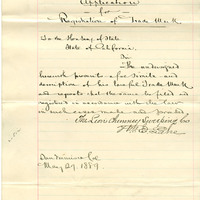 Application
for
Registration of Trade Mark
To the Secretary of State
State of California
The undersigned
herewith presents a fac simile and
description of his lawful Trade Mark
and requests that the same be filed and
registered in accordance with the law
in such cases made and provided
The Lion Chimney Sweeping Co
San Francisco Cal
May 29 1889